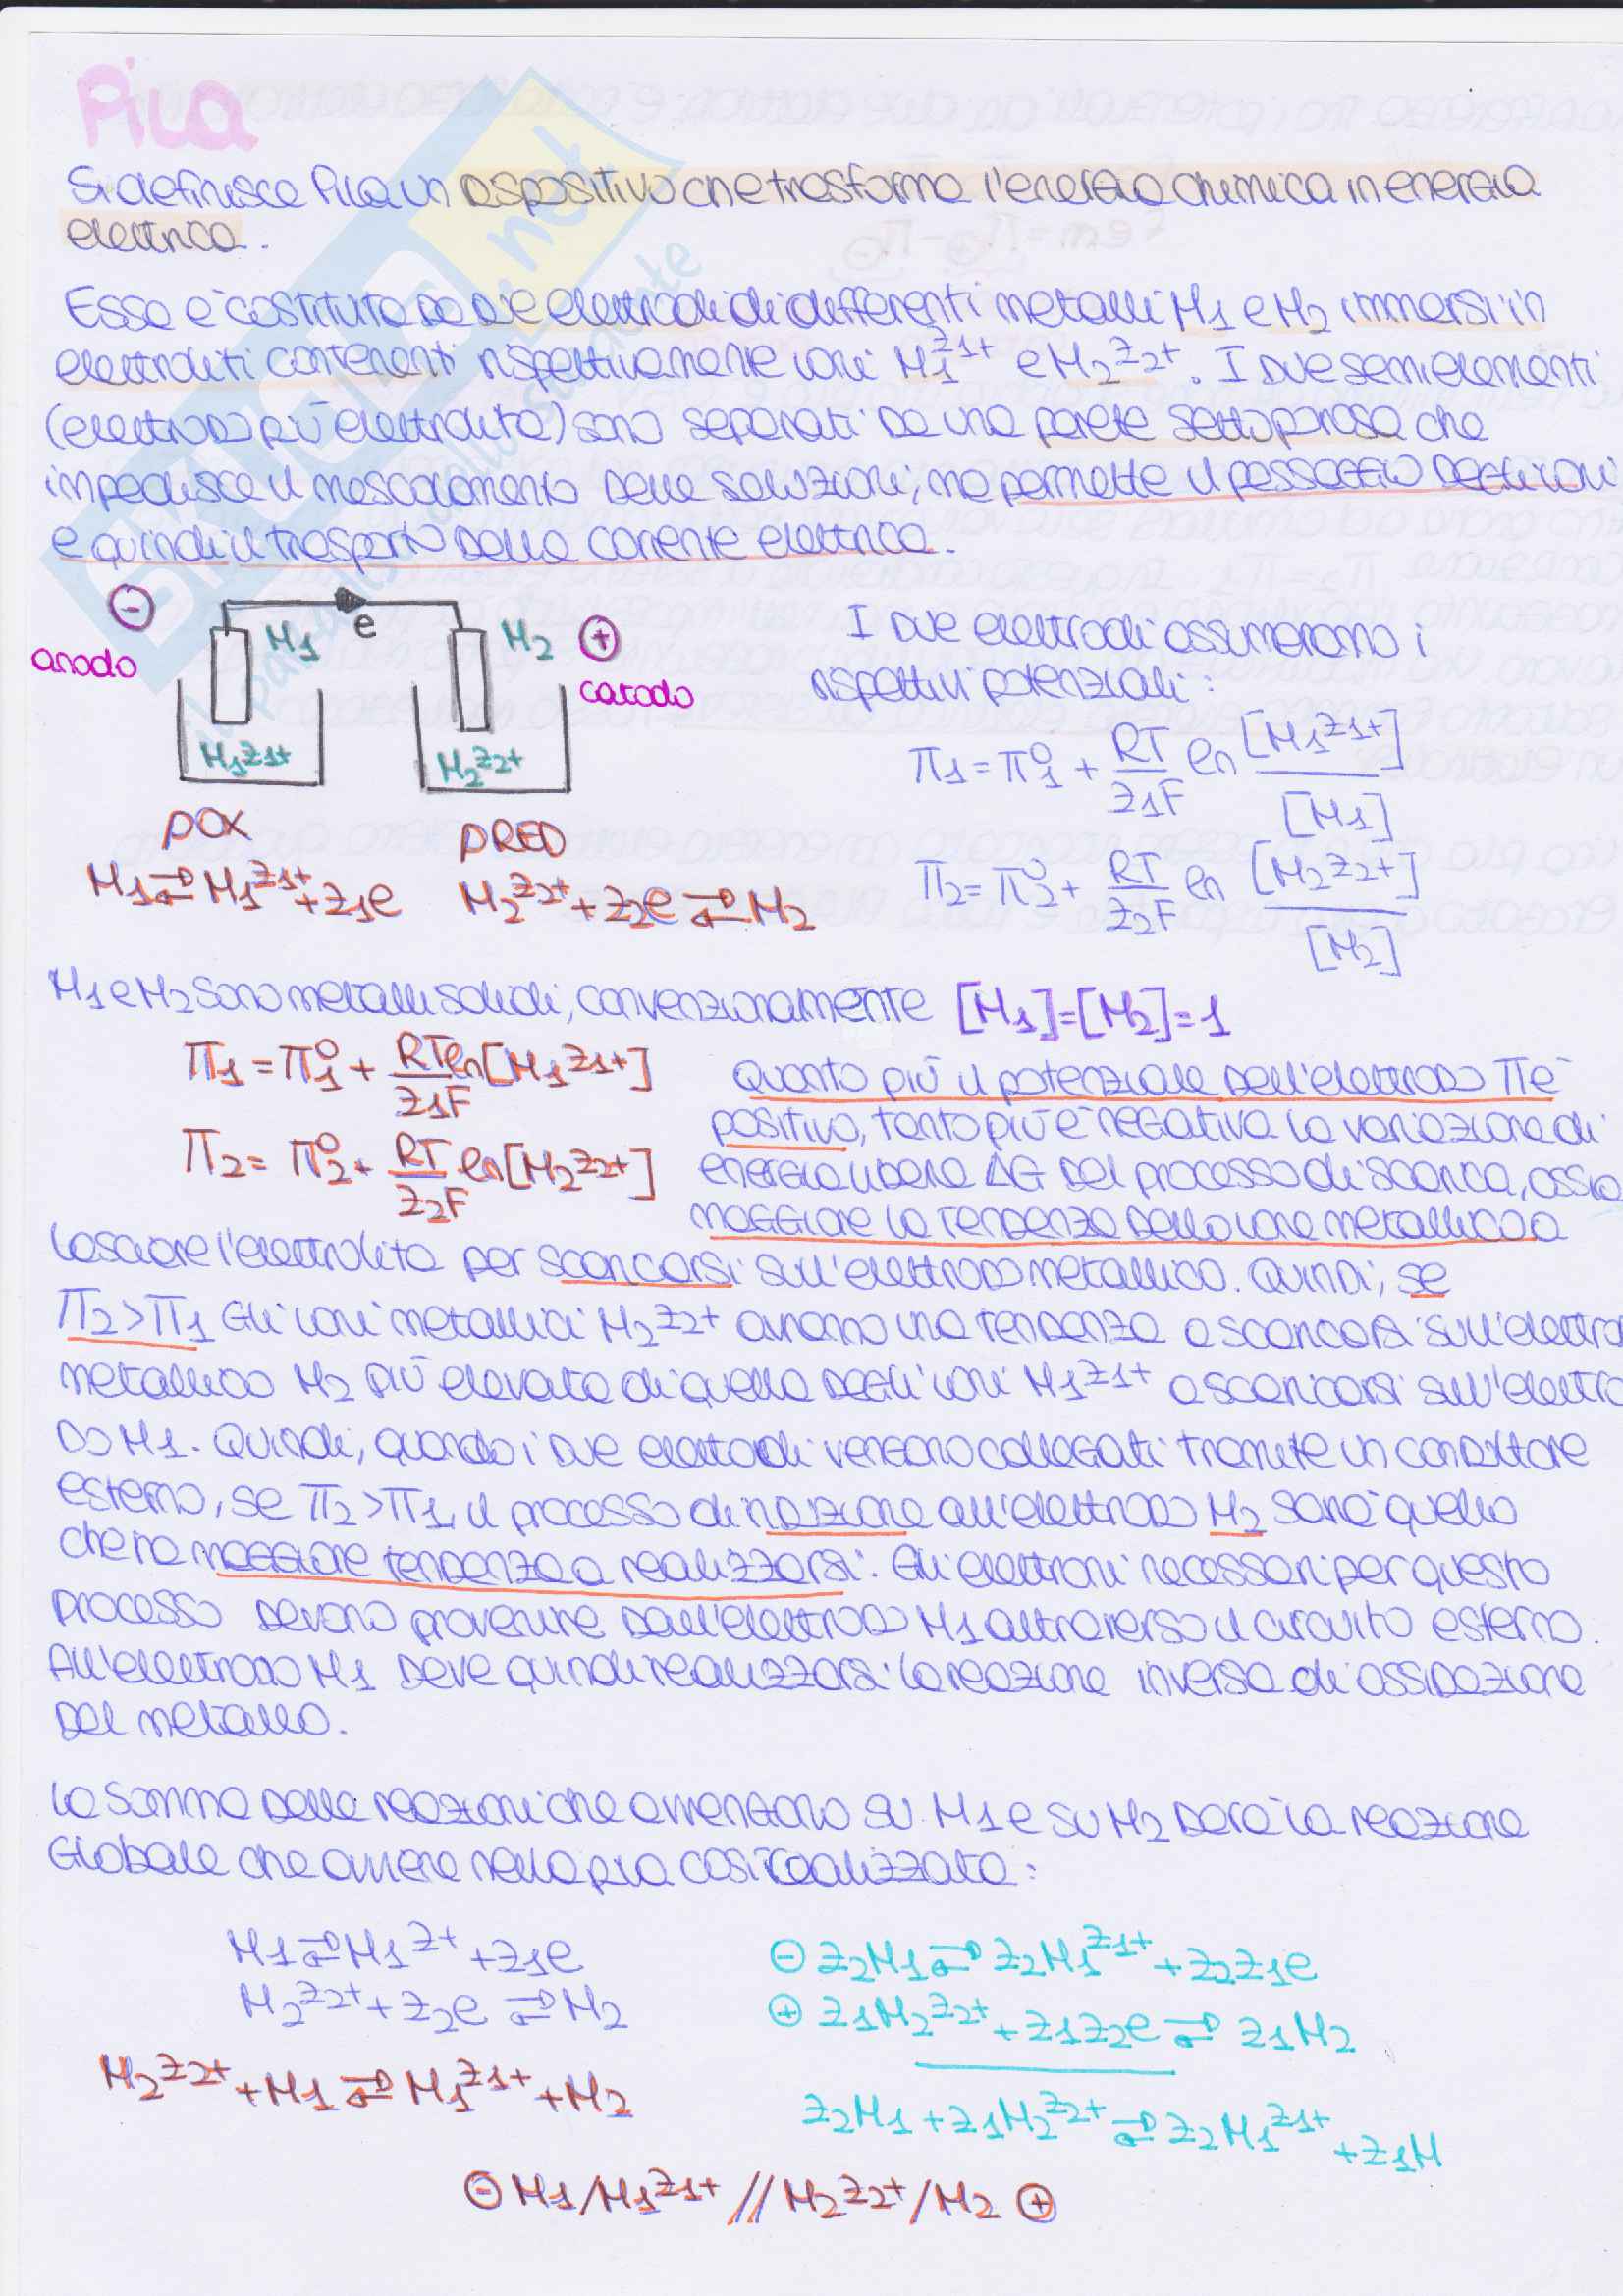 Pila
Si definisce Pila un dispositivo che trasforma l'energia chimica in energia
elettrica.
Essa è costituita da due elettrodi di differenti metalli M1 e M2 immersi in
elettroliti contenenti rispettivamente ioni M1^z1+ e M2^z2+. I due semielementi
(elettrodo più elettrolita) sono separati da una parete settoporosa che
impedisce il mescolamento delle soluzioni, ma permette il passaggio degli ioni
e quindi il trasporto della corrente elettrica.
⊖ anodo M1 e M2 ⊕ catodo
M1^z1+ M2^z2+
pox pred
M1 ⇄ M1^z1+ + z1e M2^z2+ + z2e ⇄ M2
I due elettrodi assumeranno i
rispettivi potenziali:
π1 = π°1 + RT/z1F ln [M1^z1+]/[M1]
π2 = π°2 + RT/z2F ln [M2^z2+]/[M2]
M1 e M2 sono metalli solidi, convenzionalmente [M1]=[M2]=1
π1 = π°1 + RT/z1F ln[M1^z1+]
π2 = π°2 + RT/z2F ln[M2^z2+]
Quanto più il potenziale dell'elettrodo π è
positivo, tanto più è negativa la variazione di
energia libera ΔG del processo di scarica, ossia
maggiore la tendenza dello ione metallico a
lasciare l'elettrolita per scaricarsi sull'elettrodo metallico. Quindi, se
π2>π1 gli ioni metallici M2^z2+ avranno una tendenza a scaricarsi sull'elettrodo
metallico M2 più elevata di quella degli ioni M1^z1+ a scaricarsi sull'elettro
do M1. Quindi, quando i due elettrodi vengono collegati tramite un conduttore
esterno, se π2>π1, il processo di riduzione all'elettrodo M2 sarà quello
che ha maggiore tendenza a realizzarsi. Gli elettroni necessari per questo
processo devono provenire dall'elettrodo M1 attraverso il circuito esterno.
All'elettrodo M1 deve quindi realizzarsi la reazione inversa di ossidazione
del metallo.
La somma delle reazioni che avvengono su M1 e su M2 darà la reazione
globale che avviene nella pila così realizzata:
M1 ⇄ M1^z+ + z1e
M2^z2+ + z2e ⇄ M2
M2^z2+ + M1 ⇄ M1^z1+ + M2
⊖ z2M1 ⇄ z2M1^z1+ + z2z1e
⊕ z1M2^z2+ + z1z2e ⇄ z1M2
z2M1 + z1M2^z2+ ⇄ z2M1^z1+ + z1M
⊖ M1/M1^z1+ // M2^z2+/M2 ⊕